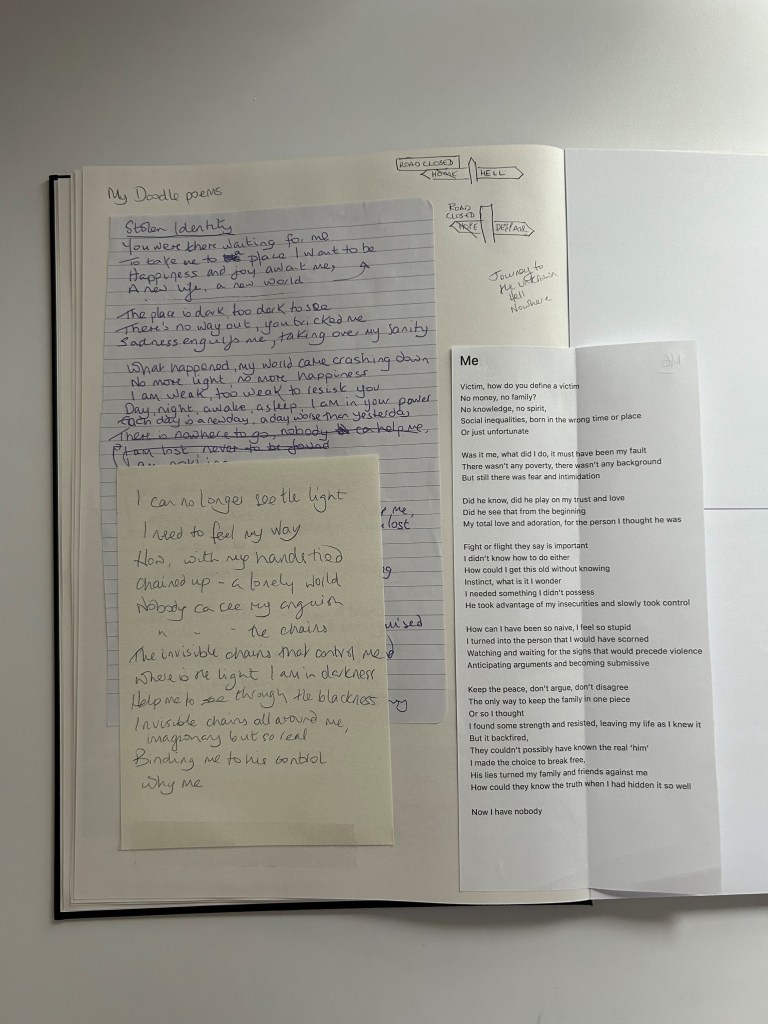 My Doodle poems
ROAD CLOSED
HOME HELL
ROAD
CLOSED
HOPE DESPAIR
Journey to
the unknown
Hell
Nowhere
Stolen Identity
You were there waiting for me
To take me to place I want to be
Happiness and joy await me,
A new life, a new world
The place is dark, too dark to see
There's no way out, you tricked me
Sadness engulfs me, taking over my sanity
What happened, my world came crashing down
No more light, no more happiness
I am weak, too weak to resist you
Day, night, awake, asleep, I am in your power
Each day is a new day, a day worse than yesterday
There is nowhere to go, nobody can help me,
I am lost, never to be found
me,
lost
I can no longer see the light
I need to feel my way
How, with my hands tied
chained up - a lonely world
Nobody can see my anguish
" - - the chains
The invisible chains that control me
Where is the light I am in darkness
Help me to see through the blackness
Invisible chains all around me,
imaginary but so real
Binding me to his control
Why me
Me
Victim, how do you define a victim
No money, no family?
No knowledge, no spirit,
Social inequalities, born in the wrong time or place
Or just unfortunate
Was it me, what did I do, it must have been my fault
There wasn't any poverty, there wasn't any background
But still there was fear and intimidation
Did he know, did he play on my trust and love
Did he see that from the beginning
My total love and adoration, for the person I thought he was
Fight or flight they say is important
I didn't know how to do either
How could I get this old without knowing
Instinct, what is it I wonder
I needed something I didn't possess
He took advantage of my insecurities and slowly took control
How can I have been so naive, I feel so stupid
I turned into the person that I would have scorned
Watching and waiting for the signs that would precede violence
Anticipating arguments and becoming submissive
Keep the peace, don't argue, don't disagree
The only way to keep the family in one piece
Or so I thought
I found some strength and resisted, leaving my life as I knew it
But it backfired,
They couldn't possibly have known the real 'him'
I made the choice to break free,
His lies turned my family and friends against me
How could they know the truth when I had hidden it so well
Now I have nobody